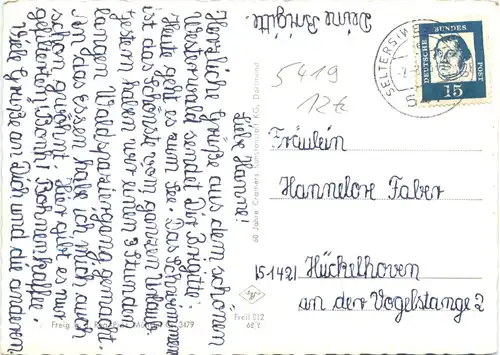 Liebe Hanne!
Herzliche Grüße aus dem schönen
Westerwald sendet Dir Brigitte.
Heute geht es zum See. Das Schwimmen
ist das Schönste vom ganzen Urlaub.
Gestern haben wir einen 3 Stunden
langen Waldspaziergang gemacht.
An das Essen habe ich mich auch
schon gewöhnt. Hier gibt es nur
gefilterten Bohnenkaffee.
Viele Grüße an Dich und die anderen
Deine Brigitte.
60 Jahre Cramers Kunstanstalt KG, Dortmund
SELTERS
DEUTSCHE BUNDES POST
15
5419
12t
Fräulein
Hannelore Faber
(5142) Hückelhoven
an der Vogelstange 2
3479
Freil 012